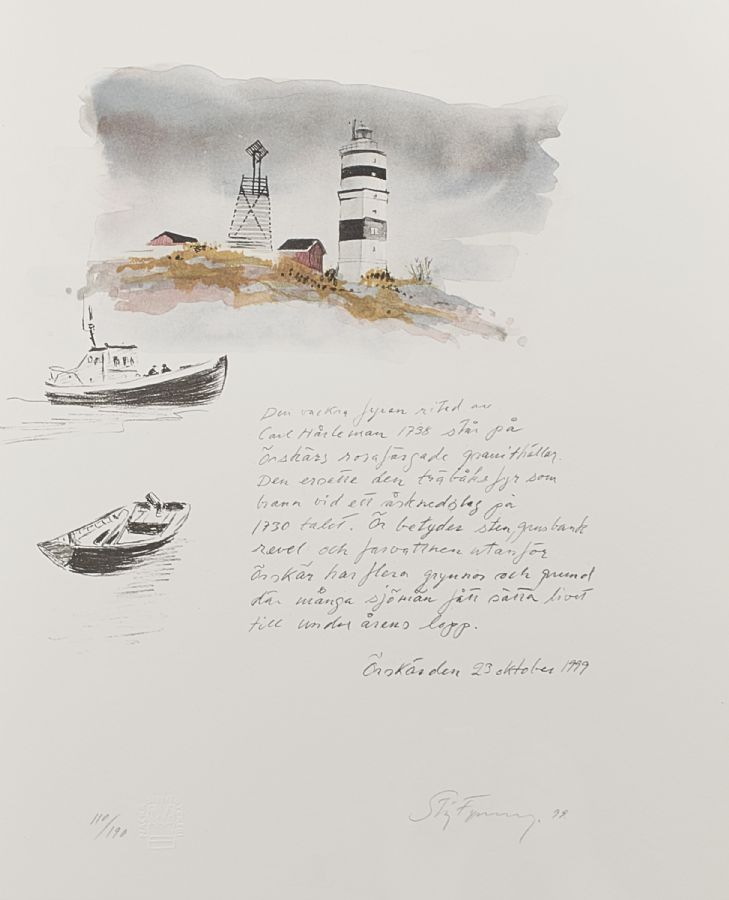 Den vackra fyren ritad av
Carl Hårleman 1738 står på
Örskärs rosafärgade granithällar.
Den ersatte den träbåksfyr som
brann vid ett åsknedslag på
1730 talet. Ör betyder sten, grusbank
revel och farvattnen utanför
Örskär har flera grynnor och grund
där många sjömän fått sätta livet
till under årens lopp.
Örskär den 23 oktober 1999
110/190
Stig 99.